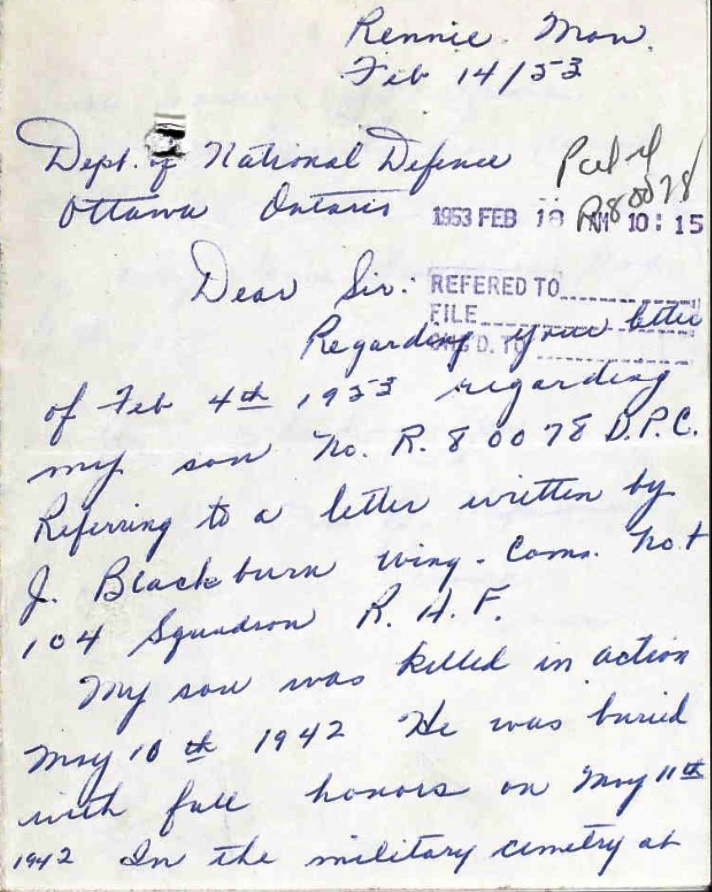 Rennie. Man.
Feb 14/53
Dept. of National Defence
Ottawa Ontario
R80078
1953 FEB 18 AM 10:15
Dear Sir:
REFERED TO
FILE
Regarding your letter
of Feb 4th 1953 regarding
my son No. R. 80078 D.P.C.
Referring to a letter written by
J. Blackburn Wing. Comm. No +
104 Squadron R. A. F.
My son was killed in action
May 10th 1942 He was buried
with full honors on May 11th
1942 In the military cemetry at